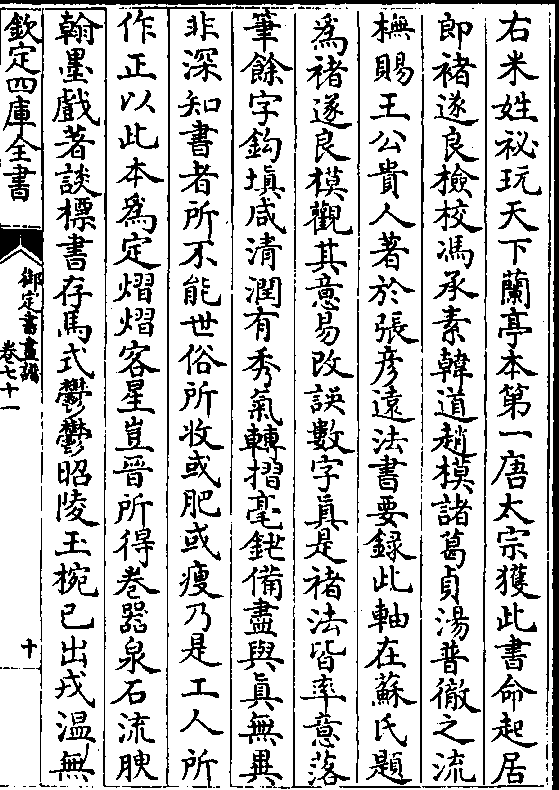 右米姓祕玩天下蘭亭本第一唐太宗獲此書命起居
即褚遂良檢校馮承素韓道趙模諸葛貞湯普徹之流
橅賜王公貴人著於張彦遠法書要録此軸在蘇氏題
爲褚遂良模觀其意易改誤數字眞是褚法皆率意落
筆餘字鈎塡咸清潤有秀氣轉摺毫鋩備盡與眞無異
非深知書者所不能世俗所收或肥或瘦乃是工人所
作正以此本爲定熠熠客星豈晉所得卷噐泉石流腴
翰墨戲著談標書存馬式鬱鬱昭陵玉椀已出戎温無
欽定四庫全書
御定書畫譜
卷七十一
十